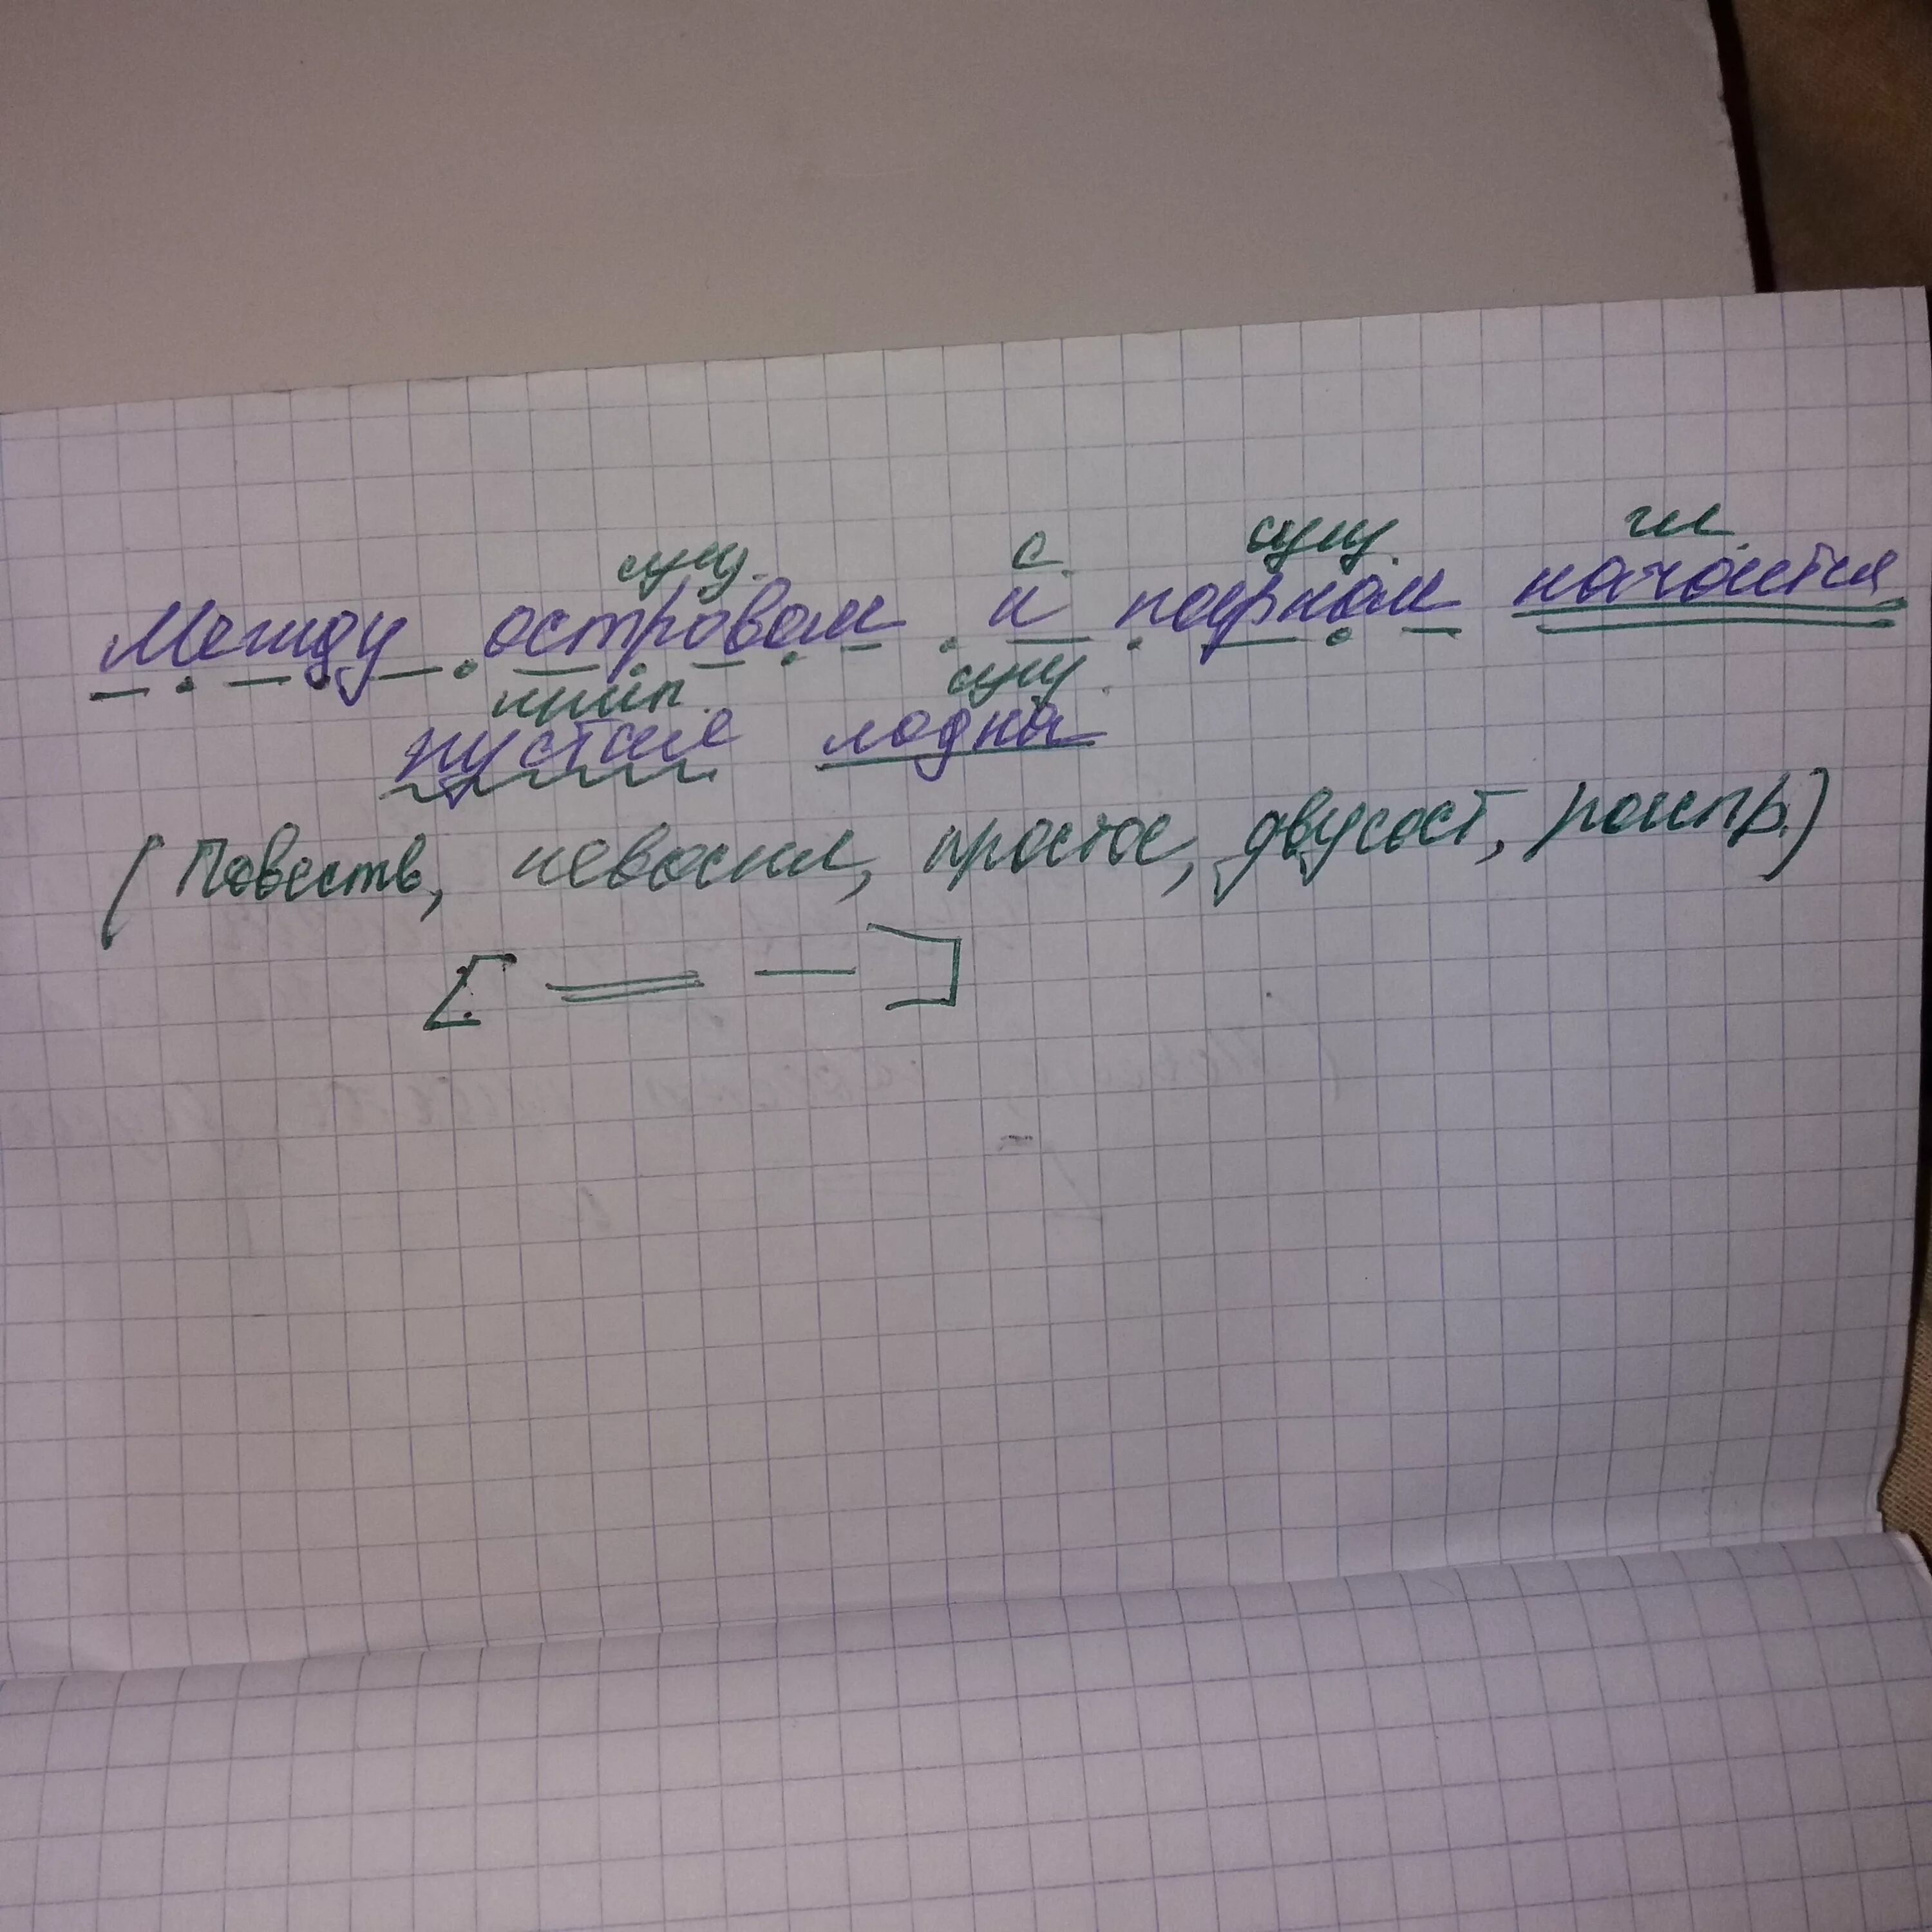 сущ. с. сущ. гл.
Между островом и парком качается
прил. сущ.
пустая лодка
(Повеств, невоскл, простое, двусост, распр.)